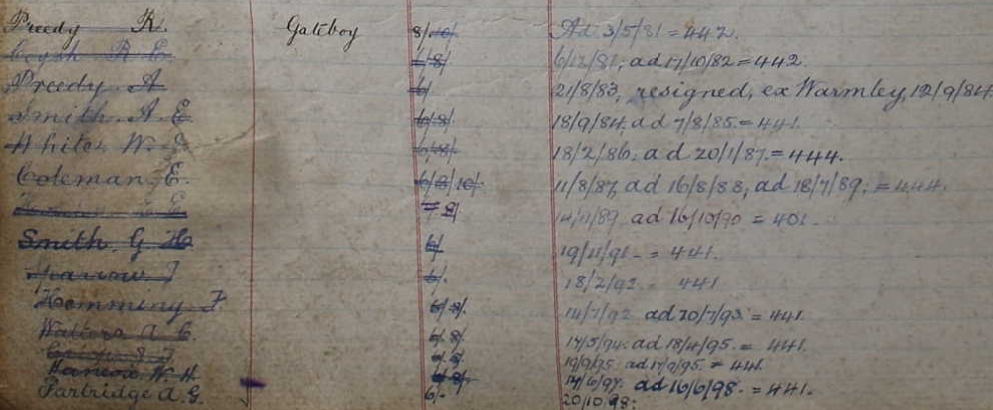 Preedy R. Gateboy 8/ 10/ Ad 3/5/81 = 442.
Coysh R E /8/ 6/12/81, ad 17/10/82 = 442.
Preedy A 6/ 21/8/83, resigned, ex Warmley, 12/9/84
Smith A E 6/8/ 18/9/84, ad 7/8/85 = 441.
White W. 6/8/ 18/2/86, ad 20/1/87. = 444.
Coleman E. 6/8/10/- 11/8/87, ad 16/8/88, ad 18/7/89, = 444.
14/11/89, ad 16/10/90 = 401.
Smith G H 6/ 19/11/91 - = 441.
Sparrow J 6/. 18/2/92 441
Hemming F 6/8/. 14/7/92 ad 20/7/93 = 441.
Walters A C 6/8/. 17/5/94. ad 18/4/95. = 441.
19/9/95. ad 17/9/95. = 441.
Hancox W. H. 14/6/97. ad 16/6/98. = 441.
Partridge A. G. 6/- 20/10/98;